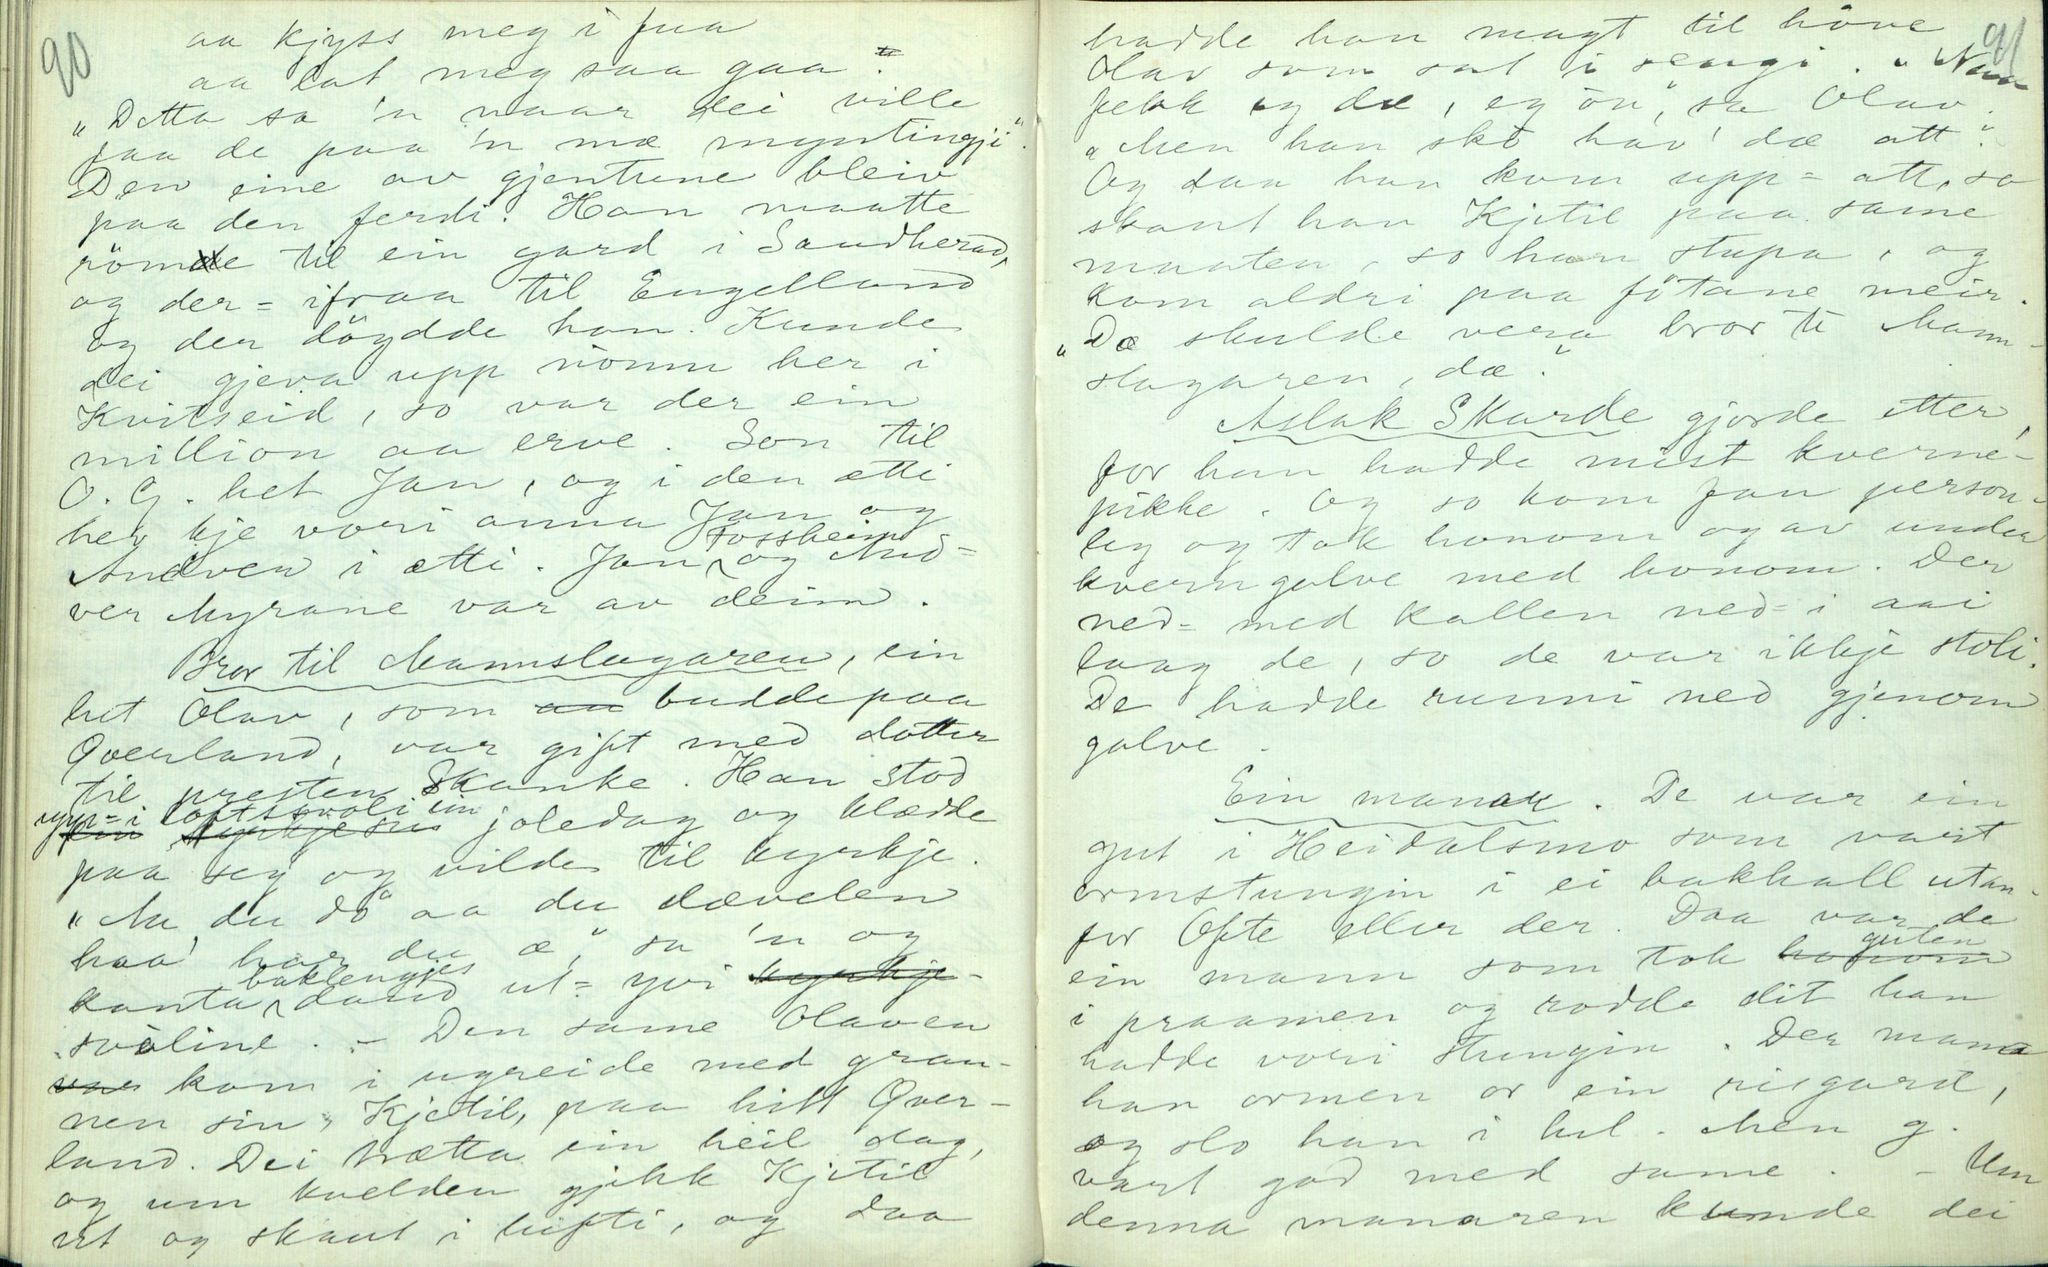 90
aa kjyss meg i fua
aa lat meg saa gaa."
"Detta sa 'n naar dei ville
faa de paa 'n mæ myntingji".
Den eine av gjentune bleiv
paa den ferdi. Han maatte
röme til ein gard i Saudherad,
og der=ifraa til Engelland
og der döydde han. Kunde
dei gjeva upp nömn her i
Kvitseid, so var der ein
million aa erve. Son til
O. G. het Jan, og i den ætti
hev kje vori anna Jan og
Andver i ætti. Jan Fossheim og And=
ver Myrane var av deim.
Bror til Mannslagaren, ein
het Olav, som budde paa
Qverland, var gift med dotter
til presten Skanke. Han stod
upp=i loftsvoli ein joledag og klædde
paa seg og vilde til kyrkje.
"Nu du dö aa du dævelen
haa' har du æ," sa 'n og
kanta baklengjes ut=yvi
svòline. - Den same Olaven
kom i ugreide med gran-
nen sin, Kjetil, paa hitt Qver-
land. Dei trætta ein heil dag,
og um kvelden gjikk Kjetil
ut og skaut i lufti, og daa
91
hadde han magt til höve
Olav som sat i sengi. "Naa
fekk eg dæ, eg òn", sa Olav.
"Men han ska hav' dæ att".
Og daa han kom upp=att, so
skaut han Kjetil paa same
maaten, so han stupa, og
kom aldri paa fötane meir.
"Dæ skulde vera bror te Mann-
slagaren, dæ".
Aslak Skarde gjorde etter,
for han hadde mist kverne-
pikke. Og so kom fan person-
leg og tok honom og av under
kverngolve med honom. Der
ned=med kallen ned=i aai
laag de, so de var ikkje stoli.
De hadde runni ned gjenom
golve.
Ein manar. De var ein
gut i Heidalsmo som vart
ormstungin i ei bakhall utan-
for Ofte eller der. Daa var de
ein mann som tok guten
i praamen og rodde dit han
hadde vori stungin. Der mana
han ormen or ein risgard,
og slo han i hel. Men g.
vart god med same. - Um
denna manaren kunde dei